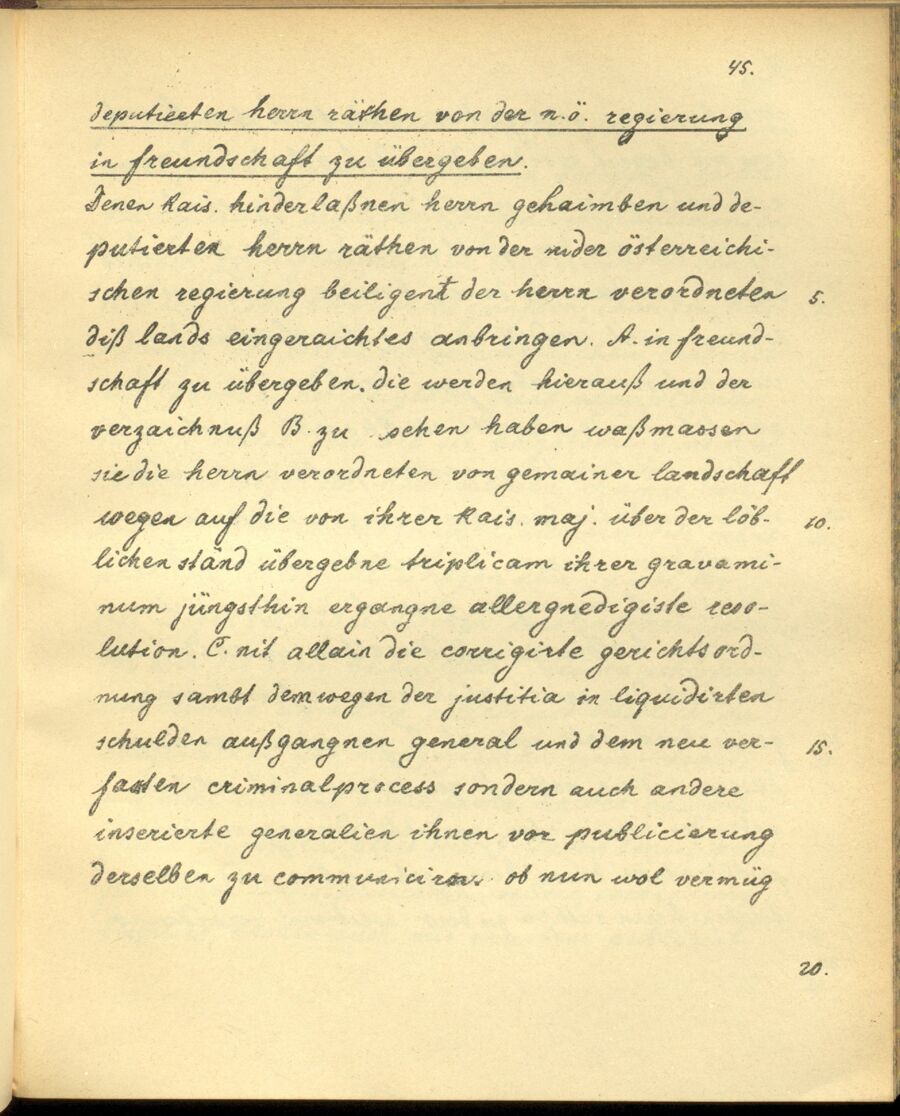 45.
deputierten herrn räthen von der n.ö. regierung
in freundschaft zu übergeben.
Denen Kais. hinderlaßnen herrn gehaimben und de-
putierten herrn räthen von der nider österreichi-
schen regierung beiligent der herrn verordneten 5.
diß lands eingeraichtes anbringen. A. in freund-
schaft zu übergeben. die werden hierauß und der
verzaichnuß B. zu sehen haben waßmassen
sie die herrn verordneten von gemainer landschaft
wegen auf die von ihrer Kais. maj. über der löb- 10.
lichen ständ übergebne triplicam ihrer gravami-
num jüngsthin ergangne allergnedigiste reso-
lution. C. nit allain die corrigirte gerichtsord-
nung sambt dem wegen der justitia in liquidirten
schulden außgangnen general und dem neu ver- 15.
fasten criminalprocess sondern auch andere
inserierte generalien ihnen vor publicierung
derselben zu communiciren. ob nun wol vermüg
20.